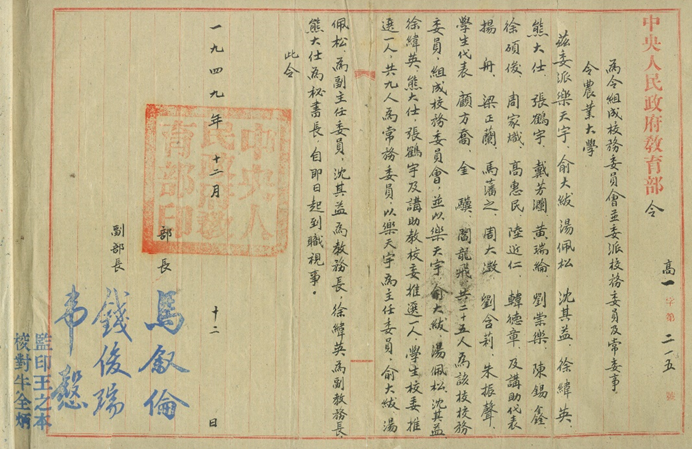 中央人民政府教育部令
高一字第二一五號
為令組成校務委員會並委派校務委員及常委事
令農業大學
茲委派樂天宇、俞大紱、湯佩松、沈其益、徐緯英、
熊大仕、張鶴宇、戴芳瀾、黃瑞綸、劉崇樂、陳錫鑫
徐碩俊、周家熾、高惠民、陸近仁、韓德章、及講助代表
揚舟、梁正蘭、馬藩之、周大澂、劉含莉、朱振聲、
學生代表顧方喬、金騤、閻龍飛、共二十五人為該校校務
委員，組成校務委員會，並以樂天宇、俞大紱、湯佩松、沈其益
徐緯英、熊大仕、張鶴宇及講助教校委推選一人，學生校委推
選一人，共九人為常務委員以樂天宇為主任委員，俞大紱湯
佩松，為副主任委員，沈其益為教務長，徐緯英為副教務長
熊大仕為秘書長，自即日起到職視事。
此令
一九四九年十二月十二日
中央人民政府教育部印
部長 馬叙倫
副部長 錢俊瑞
韋慤
監印王之本
校對牛全炳